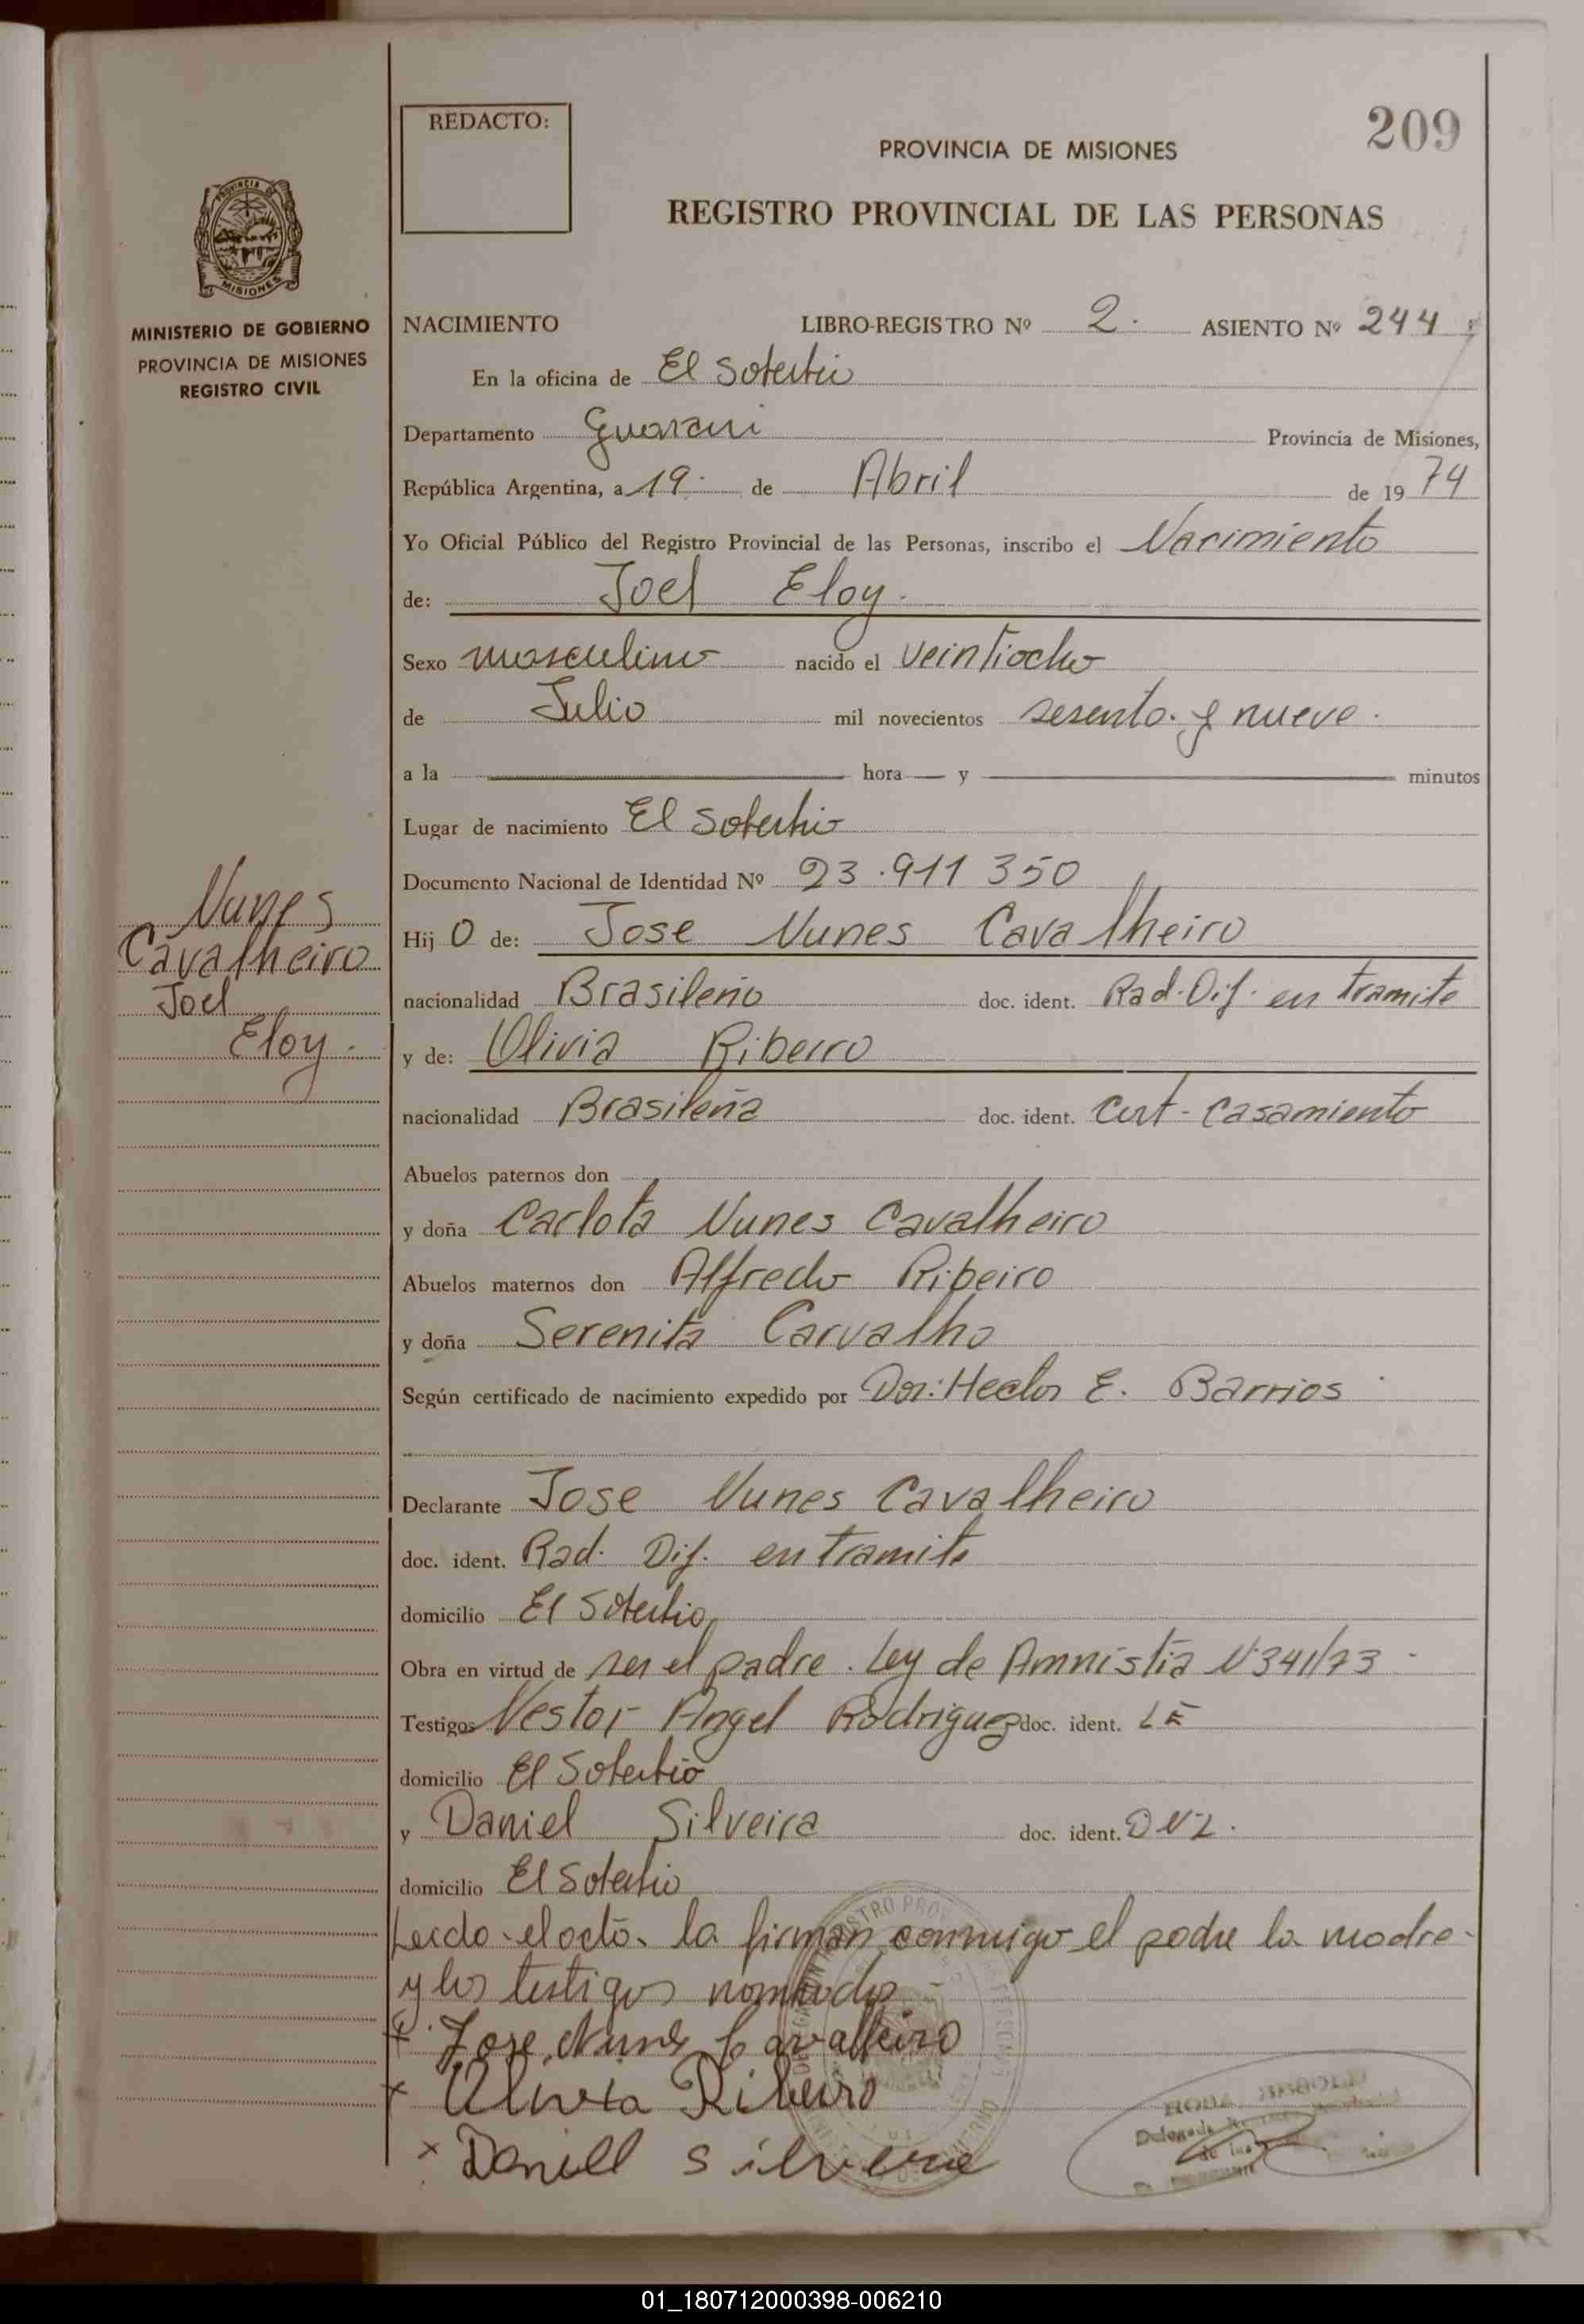 209
REDACTO:
PROVINCIA DE MISIONES
REGISTRO PROVINCIAL DE LAS PERSONAS
PROVINCIA DE MISIONES
MINISTERIO DE GOBIERNO
PROVINCIA DE MISIONES
REGISTRO CIVIL
NACIMIENTO LIBRO-REGISTRO Nº 2. ASIENTO Nº 244
En la oficina de El Soberbio
Departamento Guarani Provincia de Misiones,
República Argentina, a 19. de Abril de 1974
Yo Oficial Público del Registro Provincial de las Personas, inscribo el Nacimiento
de: Joel Eloy.
Sexo masculino nacido el veintiocho
de Julio mil novecientos sesenta y nueve.
a la hora y minutos
Lugar de nacimiento El Soberbio
Documento Nacional de Identidad Nº 23.911 350
Nunes
Cavalheiro
Joel
Eloy.
Hijo de: Jose Nunes Cavalheiro
nacionalidad Brasileño doc. ident. Rad. Dif. en tramite
y de: Olivia Ribeiro
nacionalidad Brasileña doc. ident. Cert-Casamiento
Abuelos paternos don
y doña Carlota Nunes Cavalheiro
Abuelos maternos don Alfredo Ribeiro
y doña Serenita Carvalho
Según certificado de nacimiento expedido por Dor: Hector E. Barrios
Declarante Jose Nunes Cavalheiro
doc. ident. Rad. Dif. en tramite
domicilio El Soberbio
Obra en virtud de ser el padre. Ley de Amnistia Nº341/73
Testigos Nestor Angel Rodriguez doc. ident. LE
domicilio El Soberbio
y Daniel Silveira doc. ident. DNI.
domicilio El Soberbio
Leido el acta la firman conmigo el padre la madre
y los testigos nombrados
Jose Nunes Cavalheiro
x Olivia Ribeiro
x Daniel Silveira
01_180712000398-006210